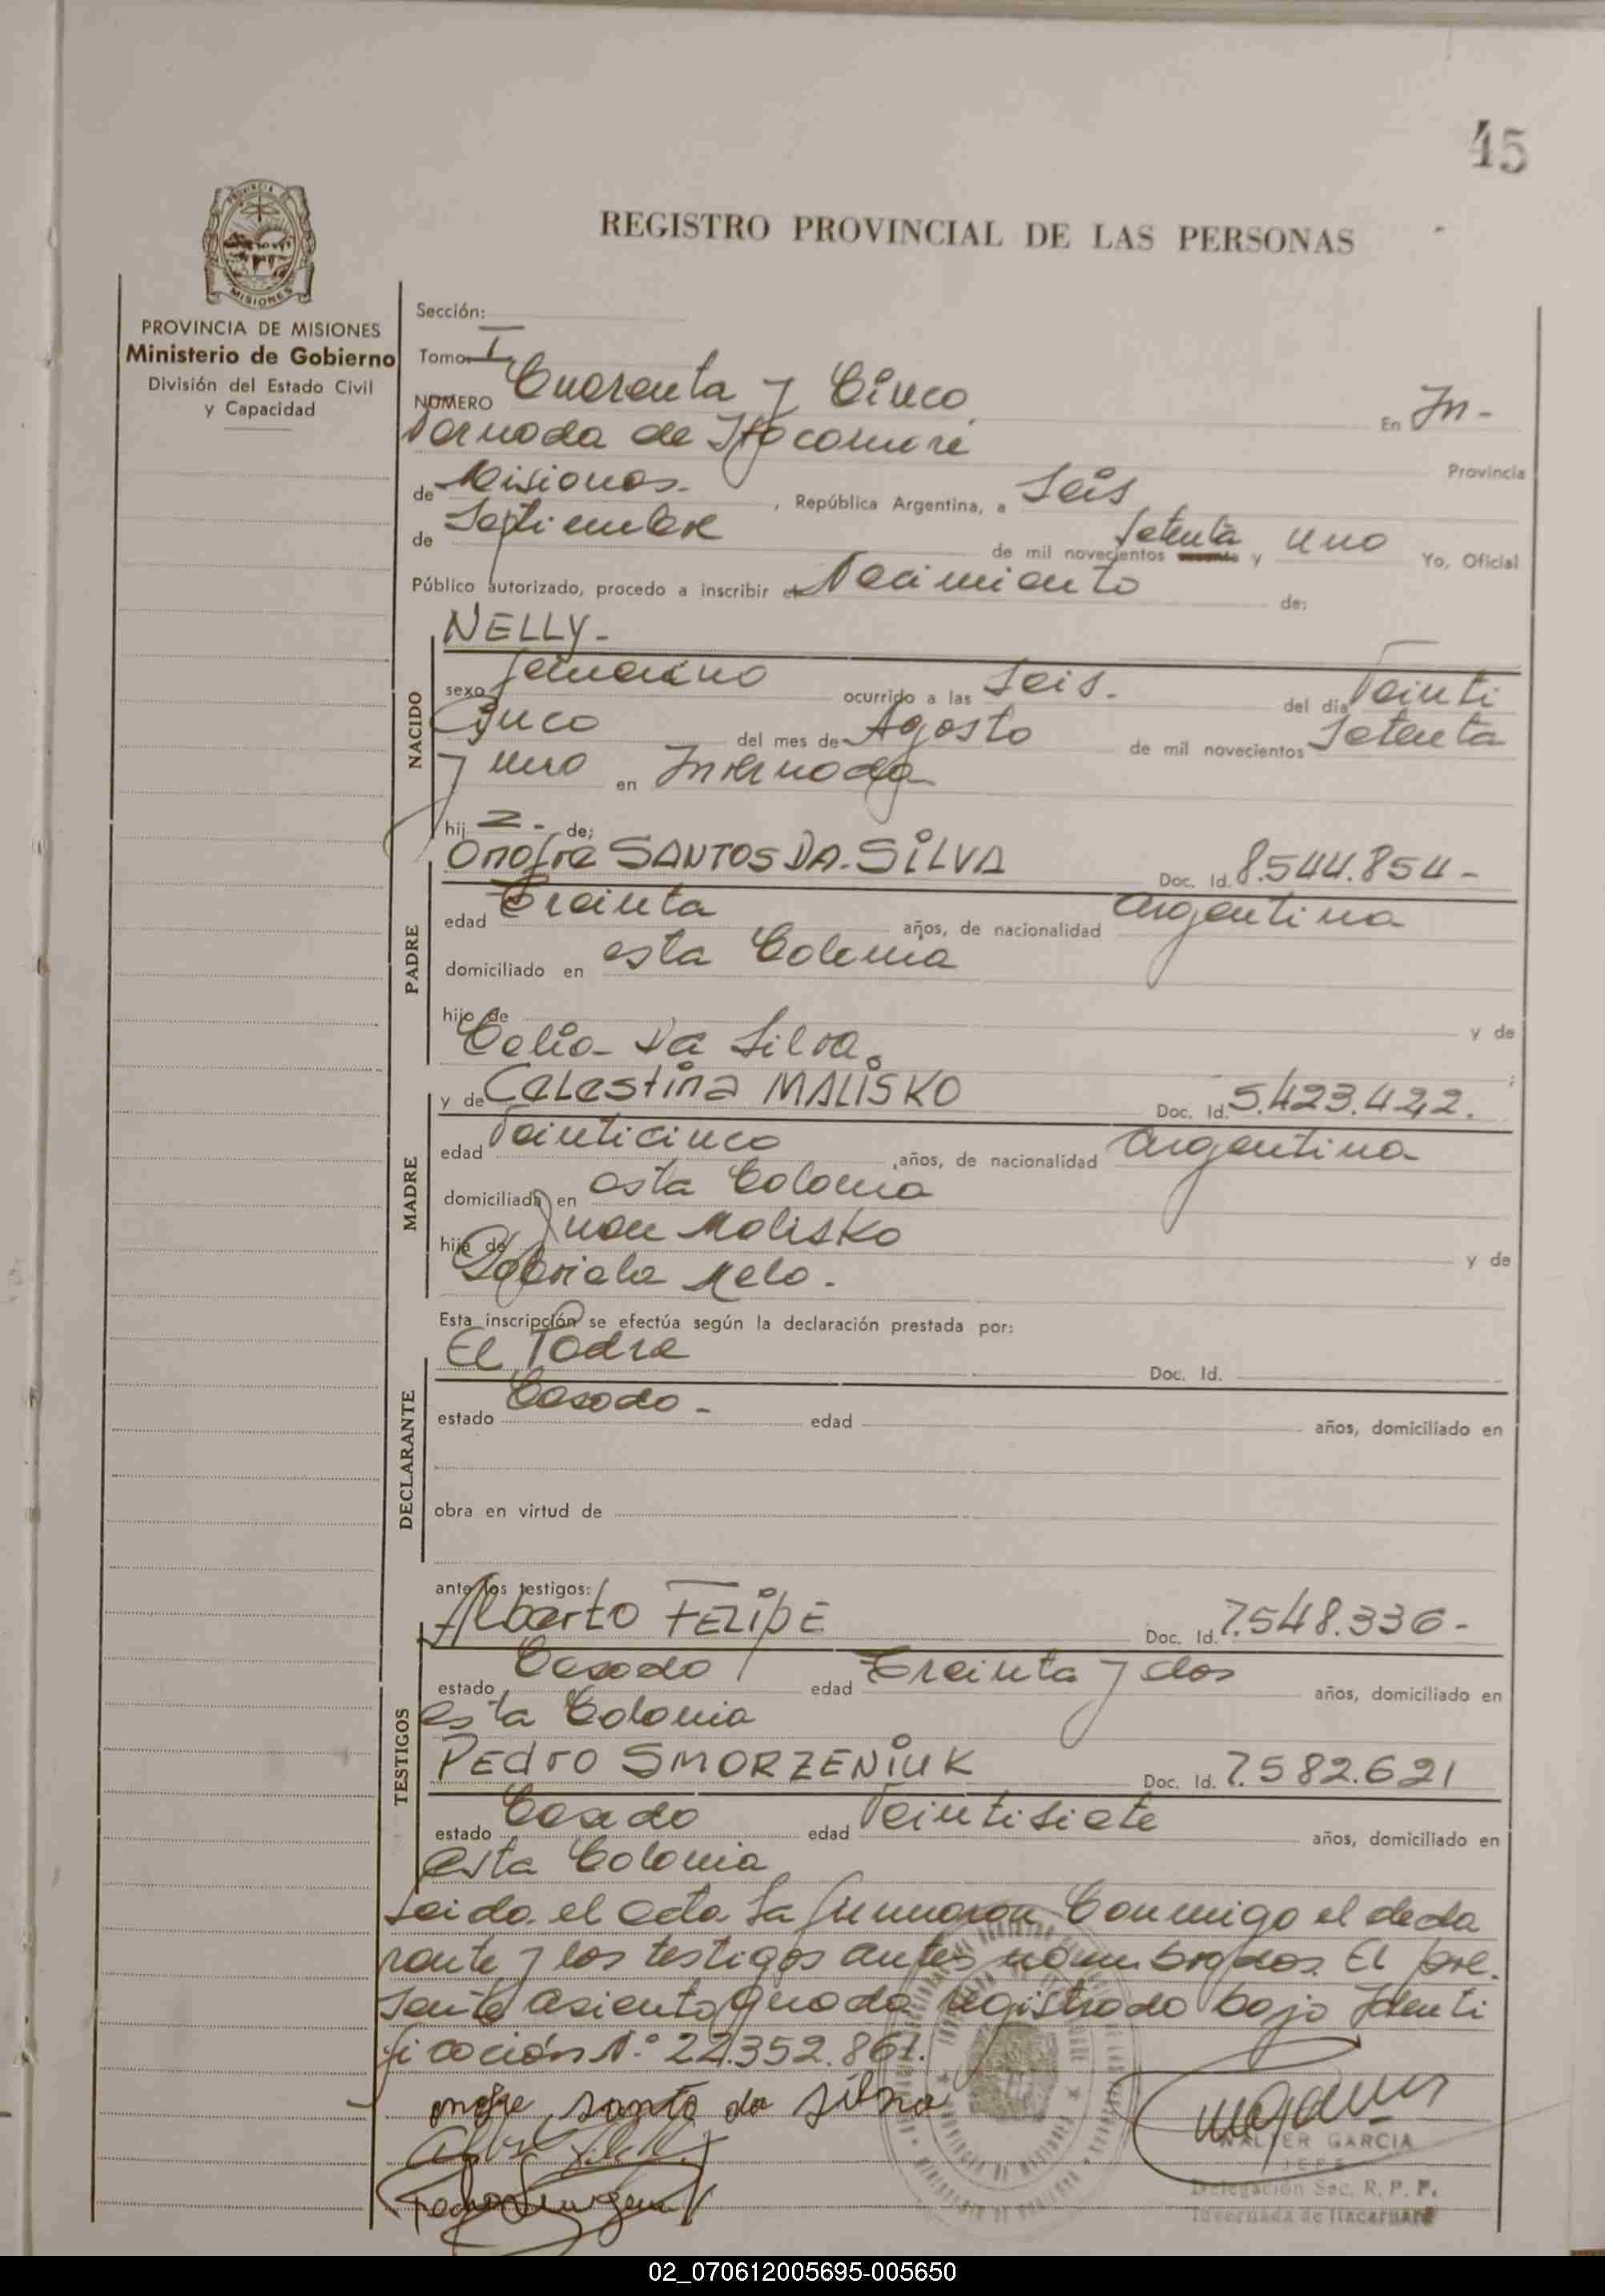 45
REGISTRO PROVINCIAL DE LAS PERSONAS
PROVINCIA DE MISIONES
Ministerio de Gobierno
División del Estado Civil
y Capacidad
Sección:
Tomo I
NUMERO Cuarenta y Cinco En In-
vernada de Itacaruaré Provincia
de Misiones. , República Argentina, a Seis
de Septiembre de mil novecientos setenta y uno Yo, Oficial
Público autorizado, procedo a inscribir el Nacimiento de:
NACIDO
NELLY-
sexo femenino ocurrido a las Seis. del día Veinti
Cinco del mes de Agosto de mil novecientos Setenta
y uno en Invernada
hij a - de:
PADRE
Onofre SANTOS DA-SILVA Doc. Id. 8.544.854-
edad Treinta años, de nacionalidad Argentina
domiciliado en esta Colonia
hijo de y de
Celia Da Silva.
MADRE
y de CELEStiNa MALISKO Doc. Id. 5.423.422.
edad Veinticinco años, de nacionalidad Argentina
domiciliada en esta Colonia
hija de Juan Malisko y de
Gabriela Melo.
DECLARANTE
Esta inscripción se efectúa según la declaración prestada por:
El Padre Doc. Id.
estado Casado - edad años, domiciliado en
obra en virtud de
TESTIGOS
ante los testigos:
Alberto FELIPE Doc. Id. 7.548.336-
estado Casado edad Treinta y dos años, domiciliado en
esta Colonia
PEdro SMORZENIUK Doc. Id. 7.582.621
estado Casado edad Veintisiete años, domiciliado en
esta Colonia
Leida el acta La firmaron Conmigo el decla
rante y los testigos antes nombrados. El pre-
sente asiento queda registrado bajo Identi
ficación N.º 22.352.861.
onofre santo da silva
WALTER GARCIA
JEFE
Delegación Sec. R. P. P.
Invernada de Itacaruaré
02_070612005695-005650